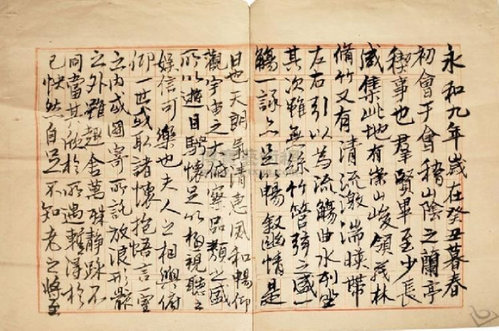 永和九年歲在癸丑暮春
初會于會稽山陰之蘭亭
稧事也群賢畢至少長
咸集此地有崇山峻領茂林
脩竹又有清流激湍暎帶
左右引以為流觴曲水列坐
其次雖無絲竹管弦之盛一
觴一詠亦足以暢敘幽情是
日也天朗氣清惠風和暢仰
觀宇宙之大俯察品類之盛
所以遊目騁懷足以極視聽之
娛信可樂也夫人之相與俯
仰一世或取諸懷抱悟言一室
之內或因寄所託放浪形骸
之外雖趣舍萬殊靜躁不
同當其欣於所遇輒得於
己怏然自足不知老之將至